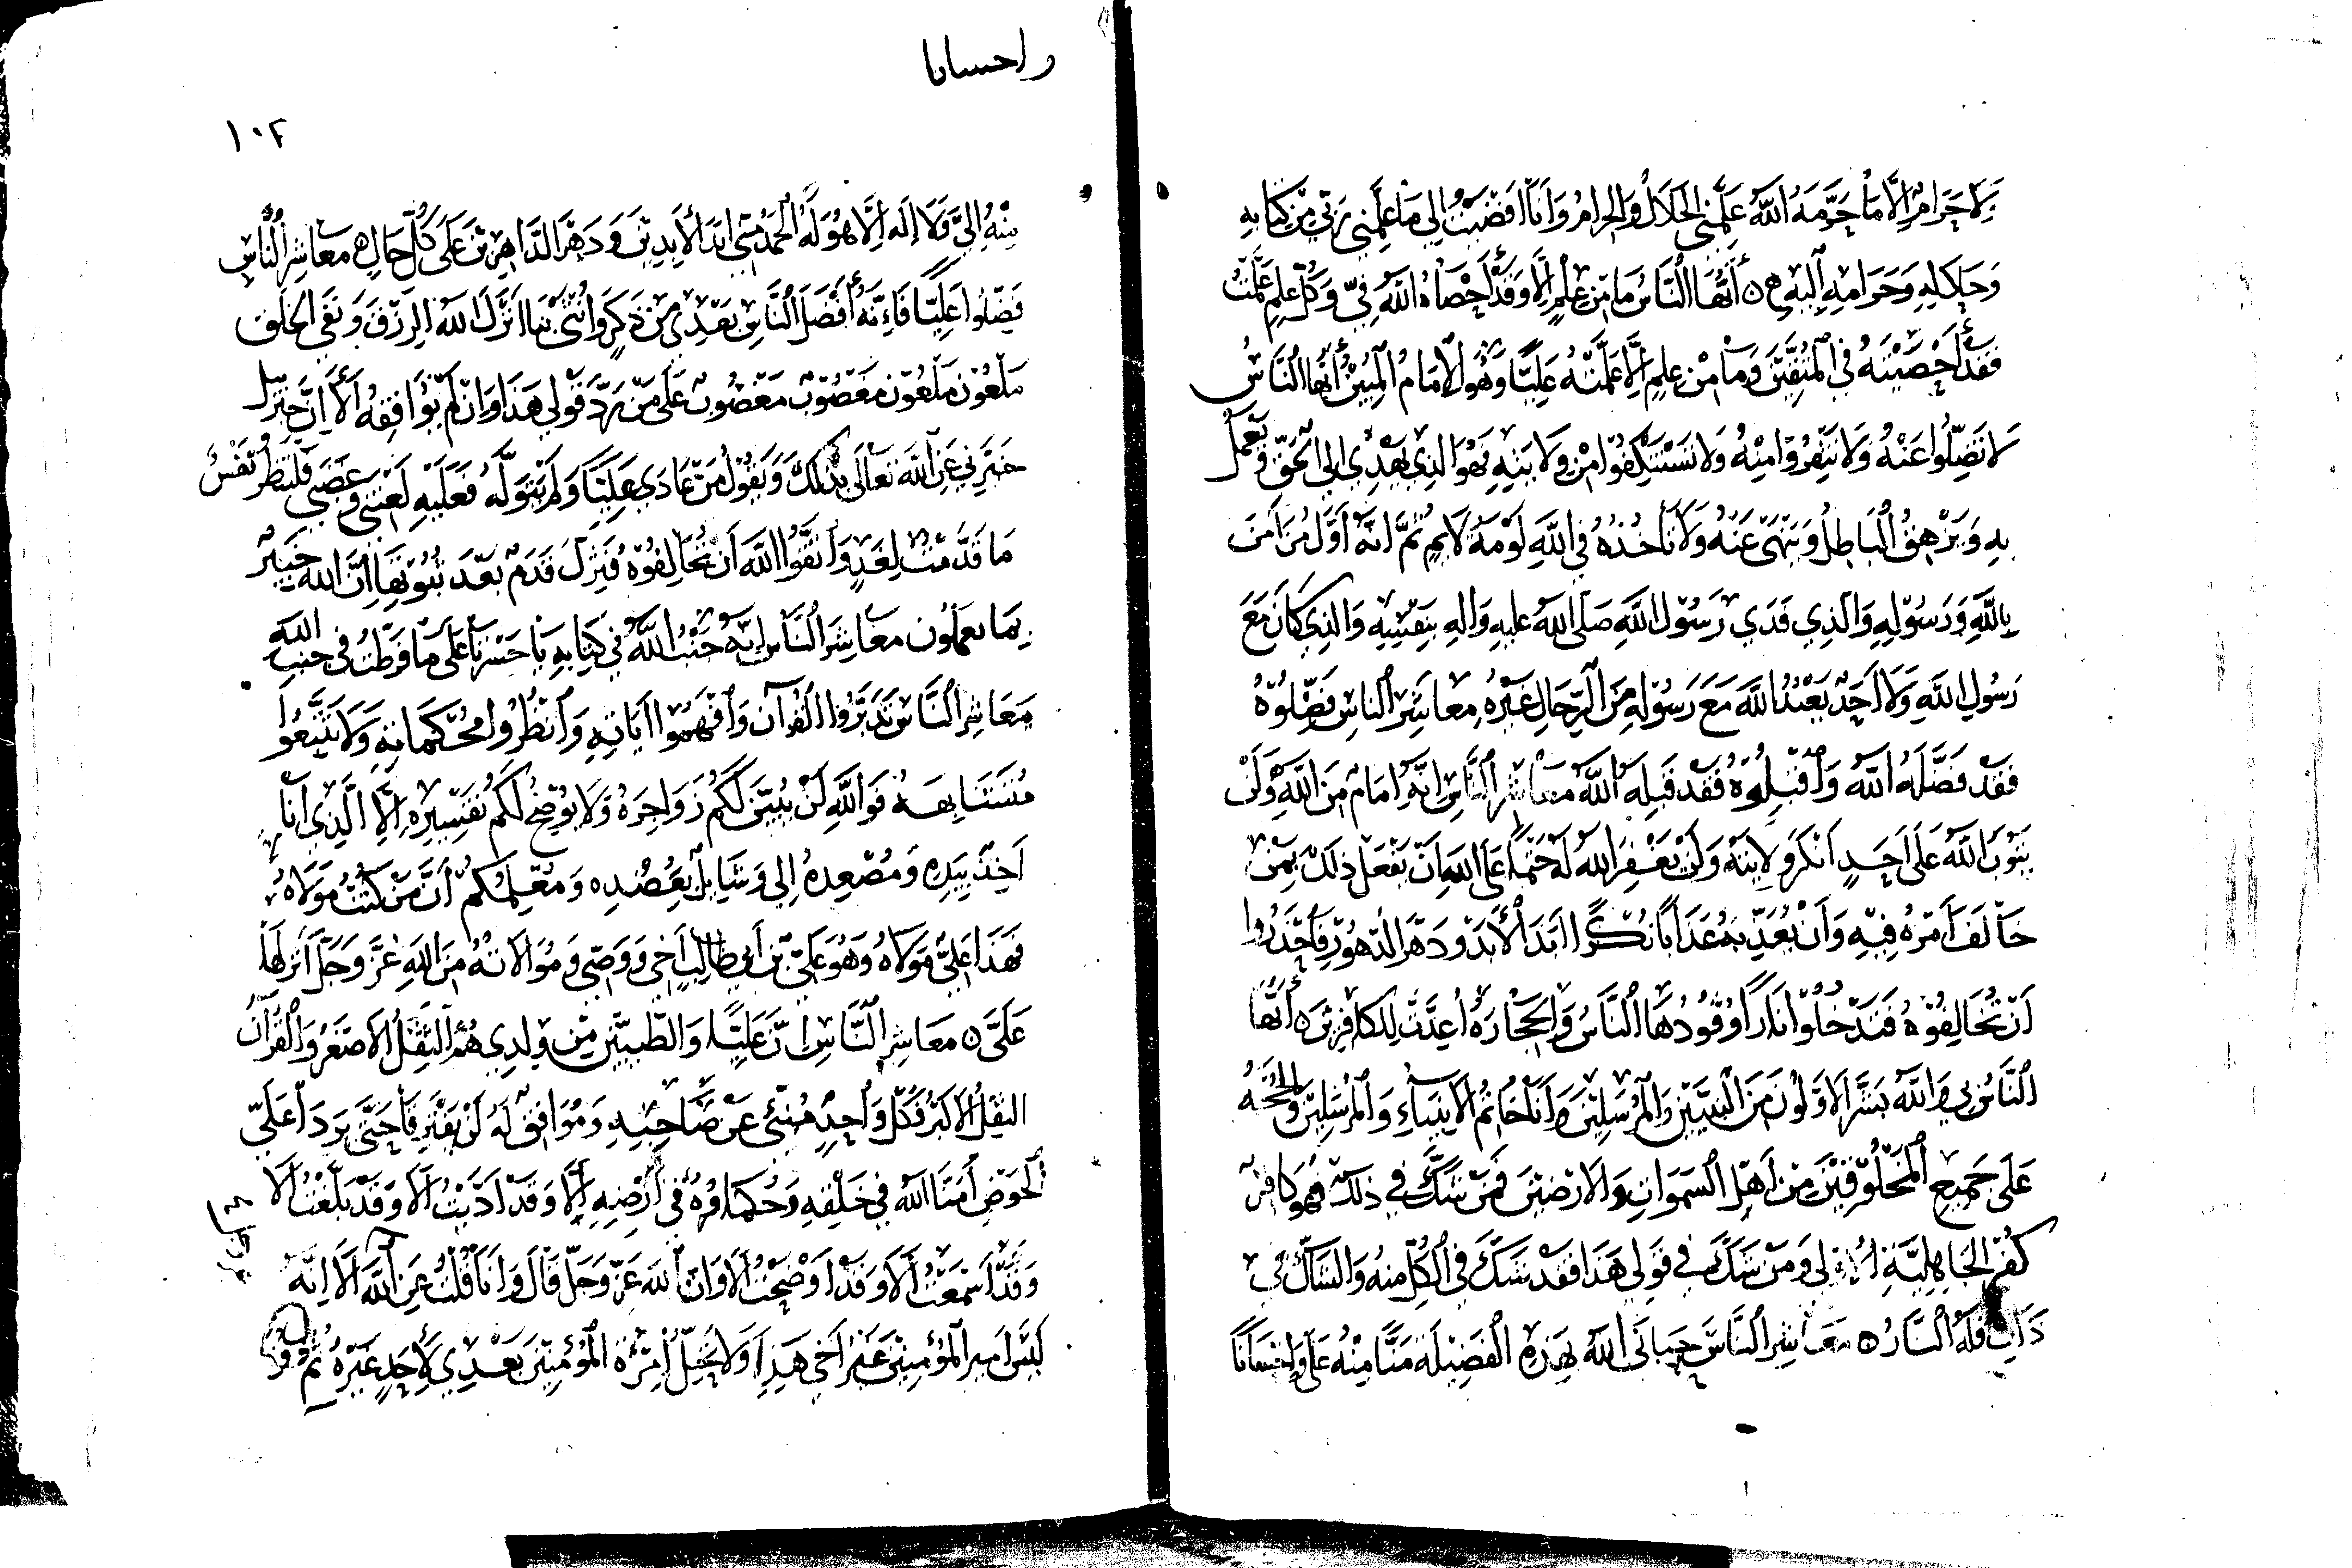 وَلَا حَرَامَ اِلَّا مَا حَرَّمَهُ اللهُ عَلَّمَنِي الحَلَالَ وَالحَرامَ وَاَنَا اَفْضَيْتُ اِلى مَا عَلَّمَنِي رَبِّي مِنْ كِتَابِهِ
وَحَلَالِهِ وَحَرَامِهِ اِلَيْهِ ه أَيُّهَا النَّاسُ مَا مِنْ عِلْمٍ اِلَّا وَقَدْ اَحْصَاهُ اللهُ فِيَّ وَكُلُّ عِلْمٍ عَلِمْتُ
فَقَدْ اَحْصَيْتُهُ فِي المُتَّقِيْنَ وَمَا مِنْ عِلْمٍ اِلَّا عَلَّمْتُهُ عَلِيًّا وَهُوَ الاِمَامُ المُبِيْنُ أَيُّهَا النَّاسُ
لَا تَضِلُّوا عَنْهُ وَلَا تَنْفِرُوا مِنْهُ وَلَا تَسْتَنْكِفُوا مِنْ وَلَايَتِهِ فَهُوَ الذِي يَهْدِي اِلى الحَقِّ وَيَعْمَلُ
بِهِ وَيُزْهِقُ البَاطِلَ وَيَنْهَى عَنْهُ وَلَا تَأْخُذُهُ فِي اللهِ لَوْمَةُ لَائِمٍ ثُمَّ اِنَّهُ اَوَّلُ مَنْ اٰمَنَ
بِاللهِ وَرَسُوْلِهِ وَالَّذِي فَدَي رَسُوْلَ اللهِ صَلَى اللهُ عليهِ وَالِهِ بِنَفْسِهِ وَالذِي كَانَ مَعَ
رَسُولِ اللهِ وَلَا اَحَدٌ يَعْبُدُ اللهَ مَعَ رَسُوْلِهِ مِنَ الرِّجَالِ غَيْرُهُ مَعاشِرَ الناسِ فَضِّلُوْهُ
فَقَدْ فَضَّلَهُ اللهُ وَاقْبَلُوْهُ فَقَدْ قَبِلَهُ اللهُ مَعَاشِرَ النَّاسِ اِنَّهُ اِمَامٌ مِنَ اللهِ وَلَنْ
يَتُوْبَ اللهُ عَلَى اَحَدٍ اَنْكَرَ وَلَايَتَهُ وَلَنْ يَغْفِرَ اللهُ لَهُ حَتْمًا عَلَى اللهِ اَنْ يَفْعَلَ ذلِكَ بِمَنْ
خَالَفَ اَمْرَهُ فِيْهِ وَاَنْ يُعَذِّبَهُ عَذَابًا نُكْرًا اَبَدَ الأَبَدِ وَدَهْرَ الدُّهُوْرِ فَاحْذَرُوا
اَنْ تُخَالِفُوْهُ فَتَدْخُلُوْا نَارًا وَقُوْدُهَا النَّاسُ وَالحِجَارَةُ اُعِدَّتْ لِلكافِرِيْنَ ه أَيُّهَا
النَّاسُ بِي وَاللهِ بَشَّرَ الاَوَّلُونَ مِنَ النَّبِيِّيْنَ وَالمُرْسَلِيْنَ وَاَنَا خَاتَمُ الاَنْبِيَاءِ وَالمُرْسَلِيْنَ وَالحُجَّةُ
عَلَى جَمِيْعِ المَخْلُوْقِيْنَ مِنْ اَهْلِ السَّمَوَاتِ وَالاَرَضِيْنَ فَمَنْ شَكَّ فِي ذلِكَ فَهُوَ كَافِرٌ
كُفْرَ الجَاهِلِيَّةِ الاُوْلى وَمَنْ شَكَّ فِي قَوْلِي هَذَا فَقَدْ شَكَّ فِي الكُلِّ مِنْهُ وَالشَّاكُّ فِي
ذَلِكَ فَلَهُ النَّارُ ه مَعَاشِرَ النَّاسِ حَبَانِيَ اللهُ بِهَذِهِ الفَضِيْلَةِ مَنًّا مِنْهُ عَلَيَّ وَاِحْسَانًا
واحسانا
١٠٢
مِنْهُ اِلَيَّ وَلَا اِلَهَ اِلَّا هُوَ لَهُ الحَمْدُ مِنِّي اَبَدَ الأَبِدِيْنَ وَدَهْرَ الدَّاهِرِيْنَ عَلَى كُلِّ حَالٍ ه مَعَاشِرَ النَّاسِ
فَضِّلُوا عَلِيًّا فَاِنَّهُ أَفْضَلُ النَّاسِ بَعْدِي مِنْ ذَكَرٍ وَاُنْثَى بِنَا اَنْزَلَ اللهُ الرِزْقَ وَبَقِيَ الخَلْقُ
مَلْعُوْنٌ مَلْعُوْنٌ مَغْضُوْبٌ مَغْضُوْبٌ عَلَى مَنْ رَدَّ قَوْلِي هَذَا وَاِنْ لَمْ يُوَافِقْهُ أَلَا اِنَّ جَبْرَئِيلَ
خَبَّرَنِي عَنِ اللهِ تَعَالَى بِذَلِكَ وَيَقُوْلُ مَنْ عَادَي عَلِيًّا وَلَمْ يَتَوَلَّهُ فَعَلَيْهِ لَعْنَتِي وَغَضَبِي فَلْتَنْظُرْ نَفْسٌ
مَا قَدَّمَتْ لِغَدٍ وَاتَّقُوا اللهَ اَنْ تُخَالِفُوْهُ فَتَزِلَّ قَدَمٌ بَعْدَ ثُبُوْتِهَا اِنَّ اللهَ خَبِيْرٌ
بِمَا تعمَلُون مَعَاشِرَ النَّاسِ اِنَّهُ جَنْبُ اللهِ فِي كِتَابِهِ يَا حَسْرَتَا عَلَى مَا فَرَّطْتُ فِي جنبِ اللهِ
مَعَاشِرَ النَّاسِ تَدَبَّرُوا القُرآنَ وَافْهَمُوا اٰيَاتِهِ وَانْظُرُوا مُحْكَمَاتِهِ وَلَا تَتَّبِعُوا
مُتَشَابِهَهُ فَوَاللهِ لَنْ يُبَيِّنَ لَكُمْ زَوَاجِرَهُ وَلَا يُوْضِحُ لَكُمْ تَفْسِيْرَهُ اِلَّا الَّذِي اَنَا
اٰخِذٌ بِيَدِهِ وَمُصْعِدُهُ اِلي وَشَايِلٌ بِعَضُدِهِ وَمُعْلِمُكُمْ اَنَّ مَنْ كُنْتُ مَوْلَاهُ
فَهَذَا عَلِيٌّ مَوْلَاهُ وَهُوَ عَلِيُّ بْنُ اَبِي طَالِبٍ اَخِي وَوَصِيّي وَمُوَالَاتُهُ مِنَ اللهِ عَزَّ وَجَلَّ اَنْزَلَهَا
عَلَيَّ ه مَعَاشِرَ النَّاسِ اِنَّ عَلِيًّا وَالطَّيِّبِيْنَ مِنْ وِلْدِي هُمُ الثِّقْلُ الاَصْغَرُ وَالْقُرْآنُ
الثِقْلُ الاَكْبَرُ فَكُلُّ وَاحِدٍ مُنْبِئٌ عَنْ صَاحِبِهِ وَمُوَافِقٌ لَهُ لَنْ يَفْتَرِقَا حَتَّى يَرِدَا عَلَيَّ
الحَوْضَ اُمَنَاءُ اللهِ فِي خَلْقِهِ وَحُكَّامُهُ فِي اَرْضِهِ اَلَا وَقَدْ اَدَّيْتُ اَلَا وَقَدْ بَلَّغْتُ اَلَا
وَقَدْ اَسْمَعْتُ اَلَا وَقَدْ اَوْضَحْتُ اَلَا وَاِنَّ اللهَ عَزَّ وَجَلَّ قَالَ وَاَنَا قُلْتُ عَنِ اللهِ اَلَا اِنَّهُ
لَيْسَ اَمِيرَ المُؤمِنِيْنَ غَيْرُ اَخِي هَذِا وَلَا تَحِلُّ اِمْرَةُ المُؤْمِنِيْنَ بَعْدِي لِأَحَدٍ غَيْرِهِ ثُمَّ